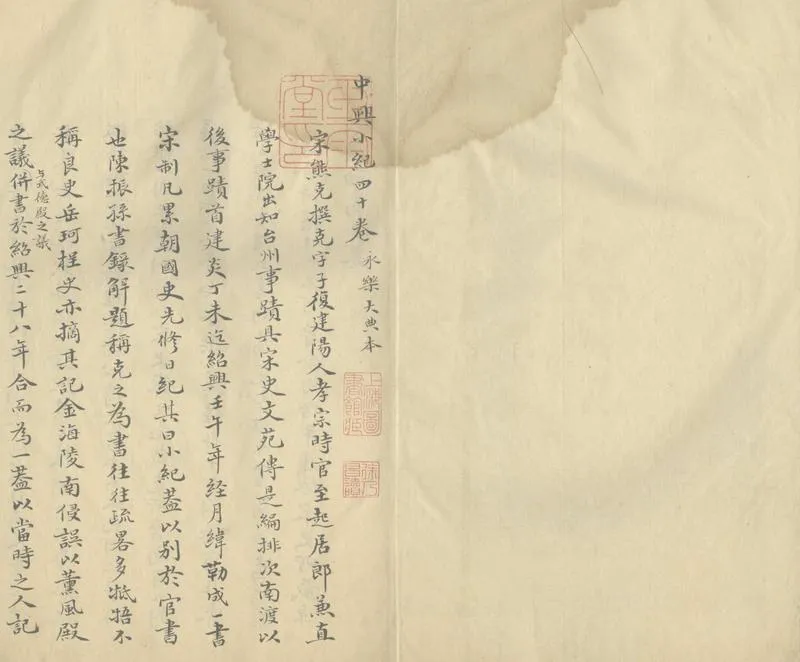 中興小紀四十卷 永樂大典本
宋熊克撰克字子復建陽人孝宗時官至起居郎兼直
學士院出知台州事蹟具宋史文苑傳是編排次南渡以
後事蹟首建炎丁未迄紹興壬午年經月緯勒成一書
宋制凡累朝國史先修日紀其曰小紀蓋以別於官書
也陳振孫書錄解題稱克之為書往往疏畧多牴牾不
稱良史岳珂桯史亦摘其記金海陵南侵誤以薰風殿
之議與武德殿之議併書於紹興二十八年合而為一葢以當時之人記
上海圖書館藏